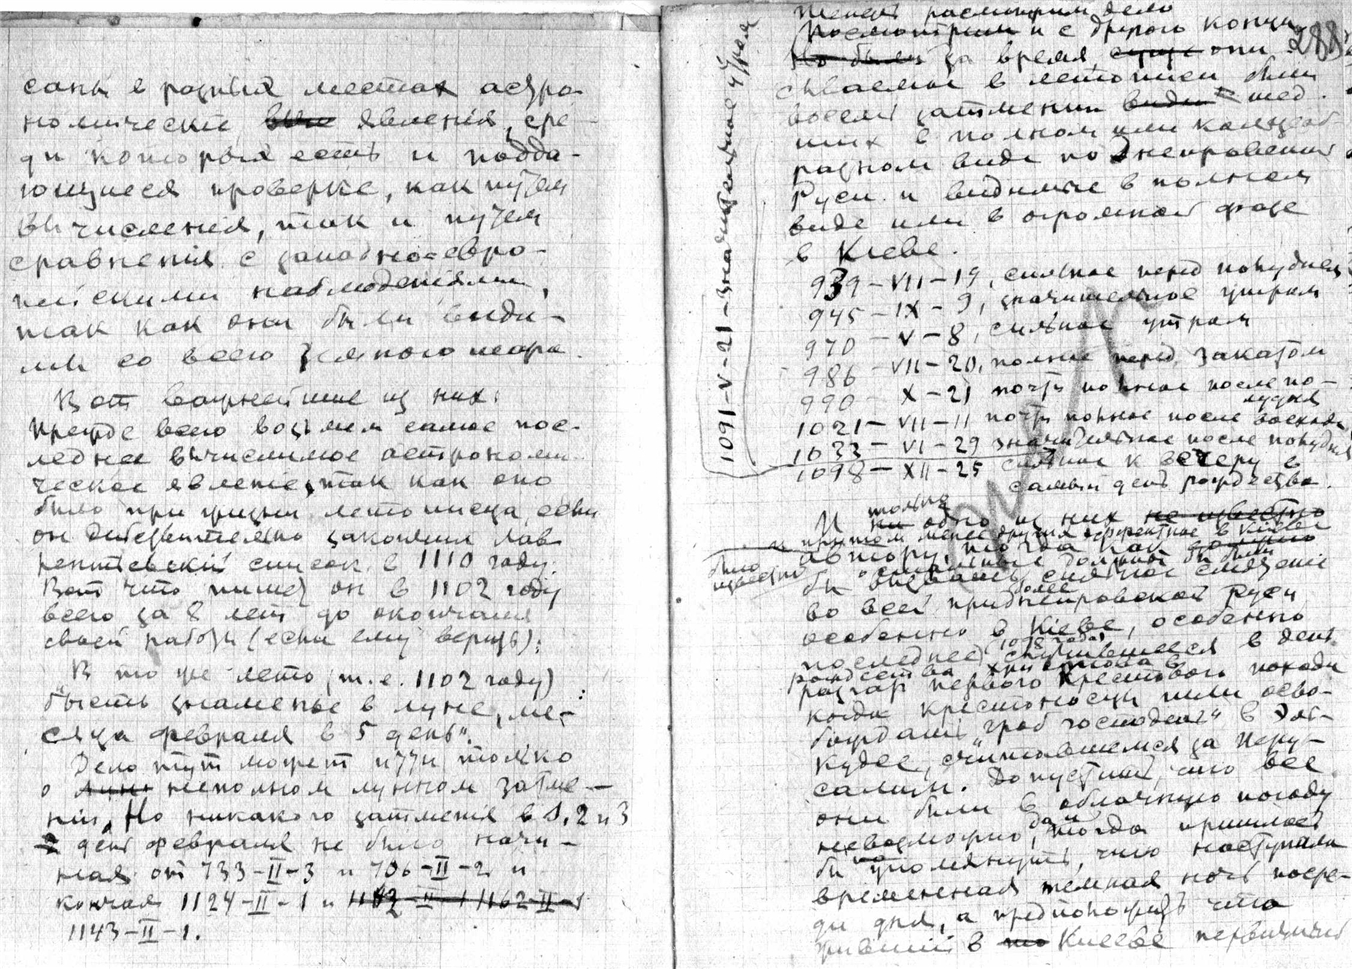 саны в разныя места астро-
номическіе явленія, сре-
ди которыя есть и подда-
ющиеся проверке, как путем
вычисленія, так и путем
сравненія с западно-евро-
пейскими наблюденіями,
так как они были види-
мы со всего земного шара.
Вот важнейшие из них:
Прежде всего возьмем самое пос-
леднее вычислимое астрономи-
ческое явление, так как оно
было при жизни летописца, если
он действительно закончил Лав-
рентьевский список в 1110 году.
Вот что пишет он в 1102 году
всего за 8 лет до окончания
своей работы (если ему верить):
"В то же лето (т.е. 1102 году)
бысть знаменье в луне, ме-
сяца февраля в 5 день".
Дело тут может идти только
о неполном лунном затме-
нии. Но никакого затменія в 1, 2 и 3
день февраля не было начи-
ная от 733-II-3 и 706-II-2 и
кончая 1124-II-1 и 1162-II-1
1143-II-1.
288
Теперь рассмотрим дело
Посмотрим и с другого конца
Но были За время, они
сываемое в летописи были
восемь затмений шед-
ших в полном или кольцеоб-
разном виде по Днепровской
Руси и видимые в полном
виде или в огромной фазе
в Кіеве.
1091-V-21-значительное утром
939-VII-19, сильное перед полуднем
945-IX-9, значительное утром
970-V-8, сильное утром
986-VII-20, полное перед закатом
990-X-21 почти полное после по-
лудня
1021-VII-11 почти полное после восхода
1033-VI-29 значительное после полудня
1098-XII-25 сильное к вечеру в
самый день рождества.
И только
ни одно из них не известно
и притом менее других эффектное в Киеве
было
известно
автору, тогда как
бы вызвать сильное смущение
во всей приднепровской Руси
более
особенно в Кіеве, особенно
последнее (1098 года) случившееся в день
рождества Христова в
разгар первого крестового похода
когда крестоносцы шли осво-
бождать "гроб господень" в
считавшемся за Иеру-
салим. Допустить, что все
они были в облачную погоду
невозможно, да и тогда пришлось
бы упомянуть, что наступала
временная темная ночь посре-
ди дня, а предположить что
живший в Киеве первичный